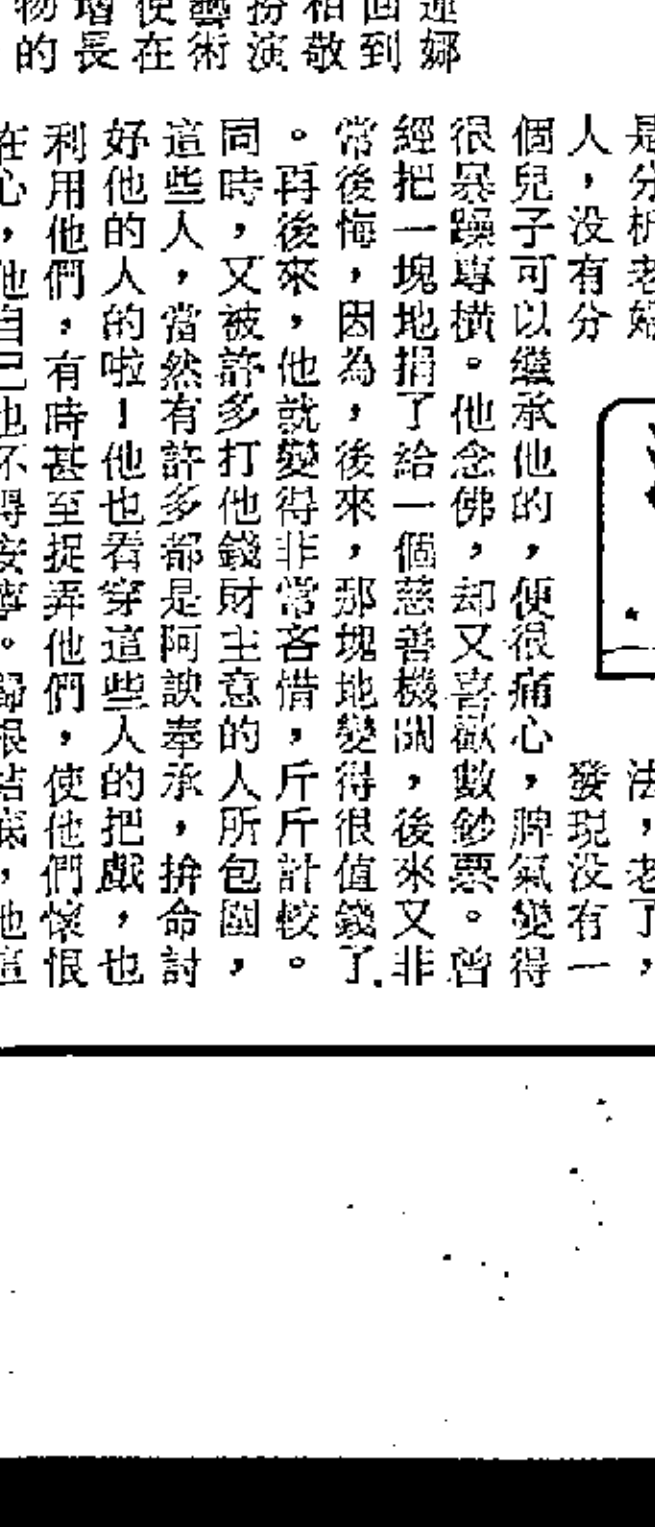 娜
回到
相敬
扮演
藝術
使在
增長
物的
是分析老婦
人，没有分
法，老了，
發現没有一
個兒子可以繼承他的，便很痛心，脾氣變得
很暴躁專橫。他念佛，却又喜歡數鈔票。曾
經把一塊地捐了給一個慈善機關，後來又非
常後悔，因為，後來，那塊地變得很值錢了
。再後來，他就變得非常吝惜，斤斤計較。
同時，又被許多打他錢財主意的人所包圍，
這些人，當然有許多都是阿諛奉承，拚命討
好他的人的啦！他也看穿這些人的把戲，也
利用他們，有時甚至捉弄他們，使他們懷恨
在心，他自己也不得安寧。歸根結底，他這